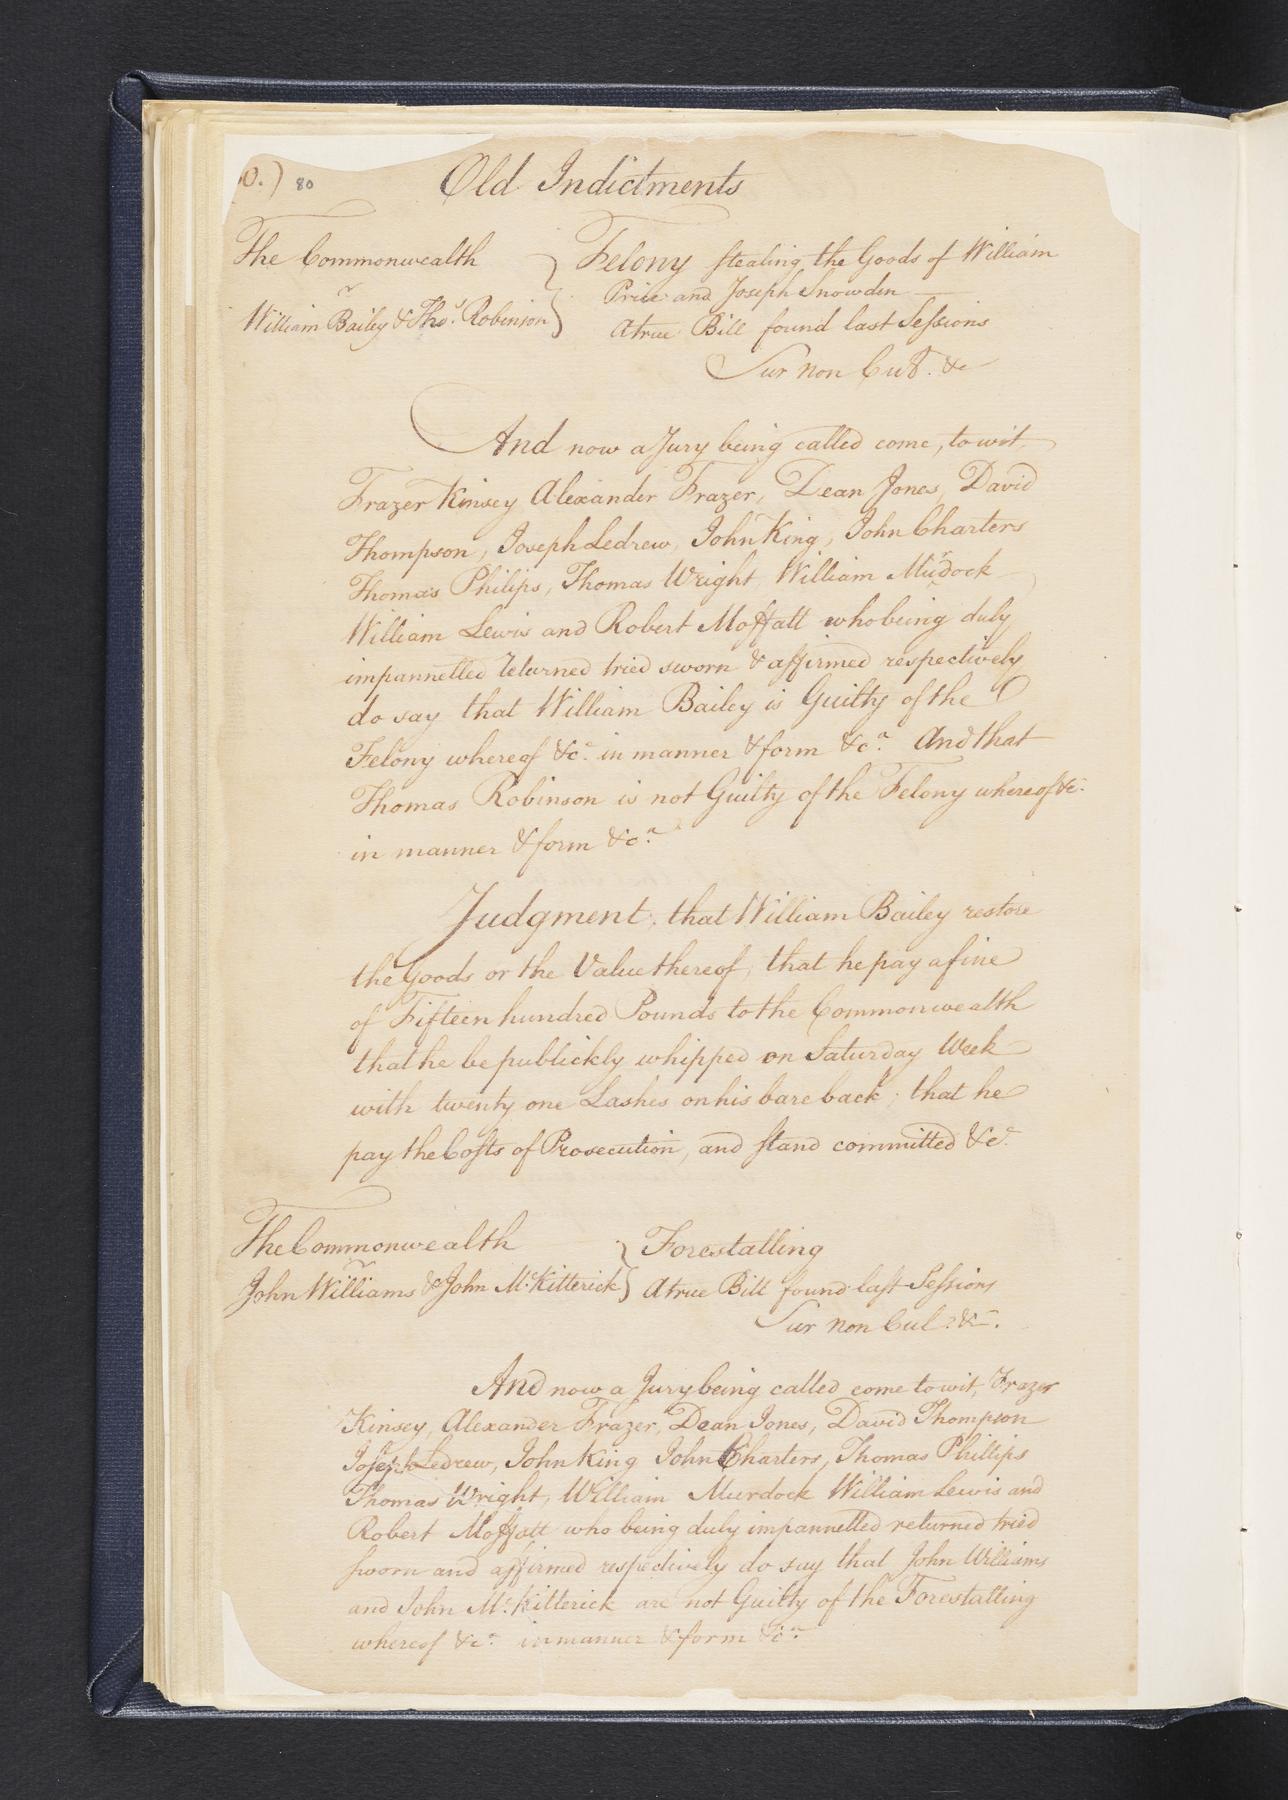 0.) 80 Old Indictments
The Commonwealth } Felony stealing the Goods of William
v
Price and Joseph Snowden
William Bailey & Thos. Robinson } A true Bill found last Sessions
Sur non Cul. &c
And now a Jury being called come, to wit,
Frazer Kinsey Alexander Frazer, Dean Jones, David
Thompson, Joseph Ledrew, John King, John Charters
Thomas Philips, Thomas Wright, William Murdock
William Lewis and Robert Moffatt who being duly
impannelled returned tried sworn & affirmed respectively
do say that William Bailey is Guilty of the
Felony whereof &ca. in manner & form &ca. And that
Thomas Robinson is not Guilty of the Felony whereof &c.
in manner & form &ca.
Judgment, that William Bailey restore
the Goods or the Value thereof, that he pay a fine
of Fifteen hundred Pounds to the Commonwealth
that he be publickly whipped on Saturday Week
with twenty one Lashes on his bare back; that he
pay the Costs of Prosecution, and stand committed &c.
The Commonwealth } Forestalling
v
John Williams & John McKitterick } A true Bill found last Sessions
Sur non Cul. &c.
And now a Jury being called come to wit, Frazer
Kinsey, Alexander Frazer, Dean Jones, David Thompson
Joseph Ledrew, John King John Charters, Thomas Phillips
Thomas Wright, William Murdock William Lewis and
Robert Moffatt who being duly impannelled returned tried
sworn and affirmed respectively do say that John Williams
and John McKitterick are not Guilty of the Forestalling
whereof &ca. in manner & form &ca.